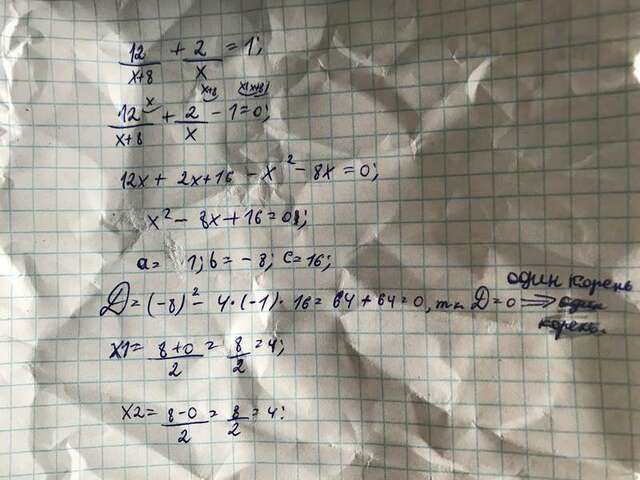 12/x+8 + 2/x = 1;
12^x/x+8 + 2^x+8/x - 1^x(x+8) = 0;
12x + 2x+16 - x² - 8x = 0;
x² - 8x + 16 = 0;
a = 1; b = -8; c = 16;
D = (-8)² - 4·(-1)·16 = 64 + 64 = 0, т.к D = 0 => один корень
x1 = 8+0/2 = 8/2 = 4;
x2 = 8-0/2 = 8/2 = 4;